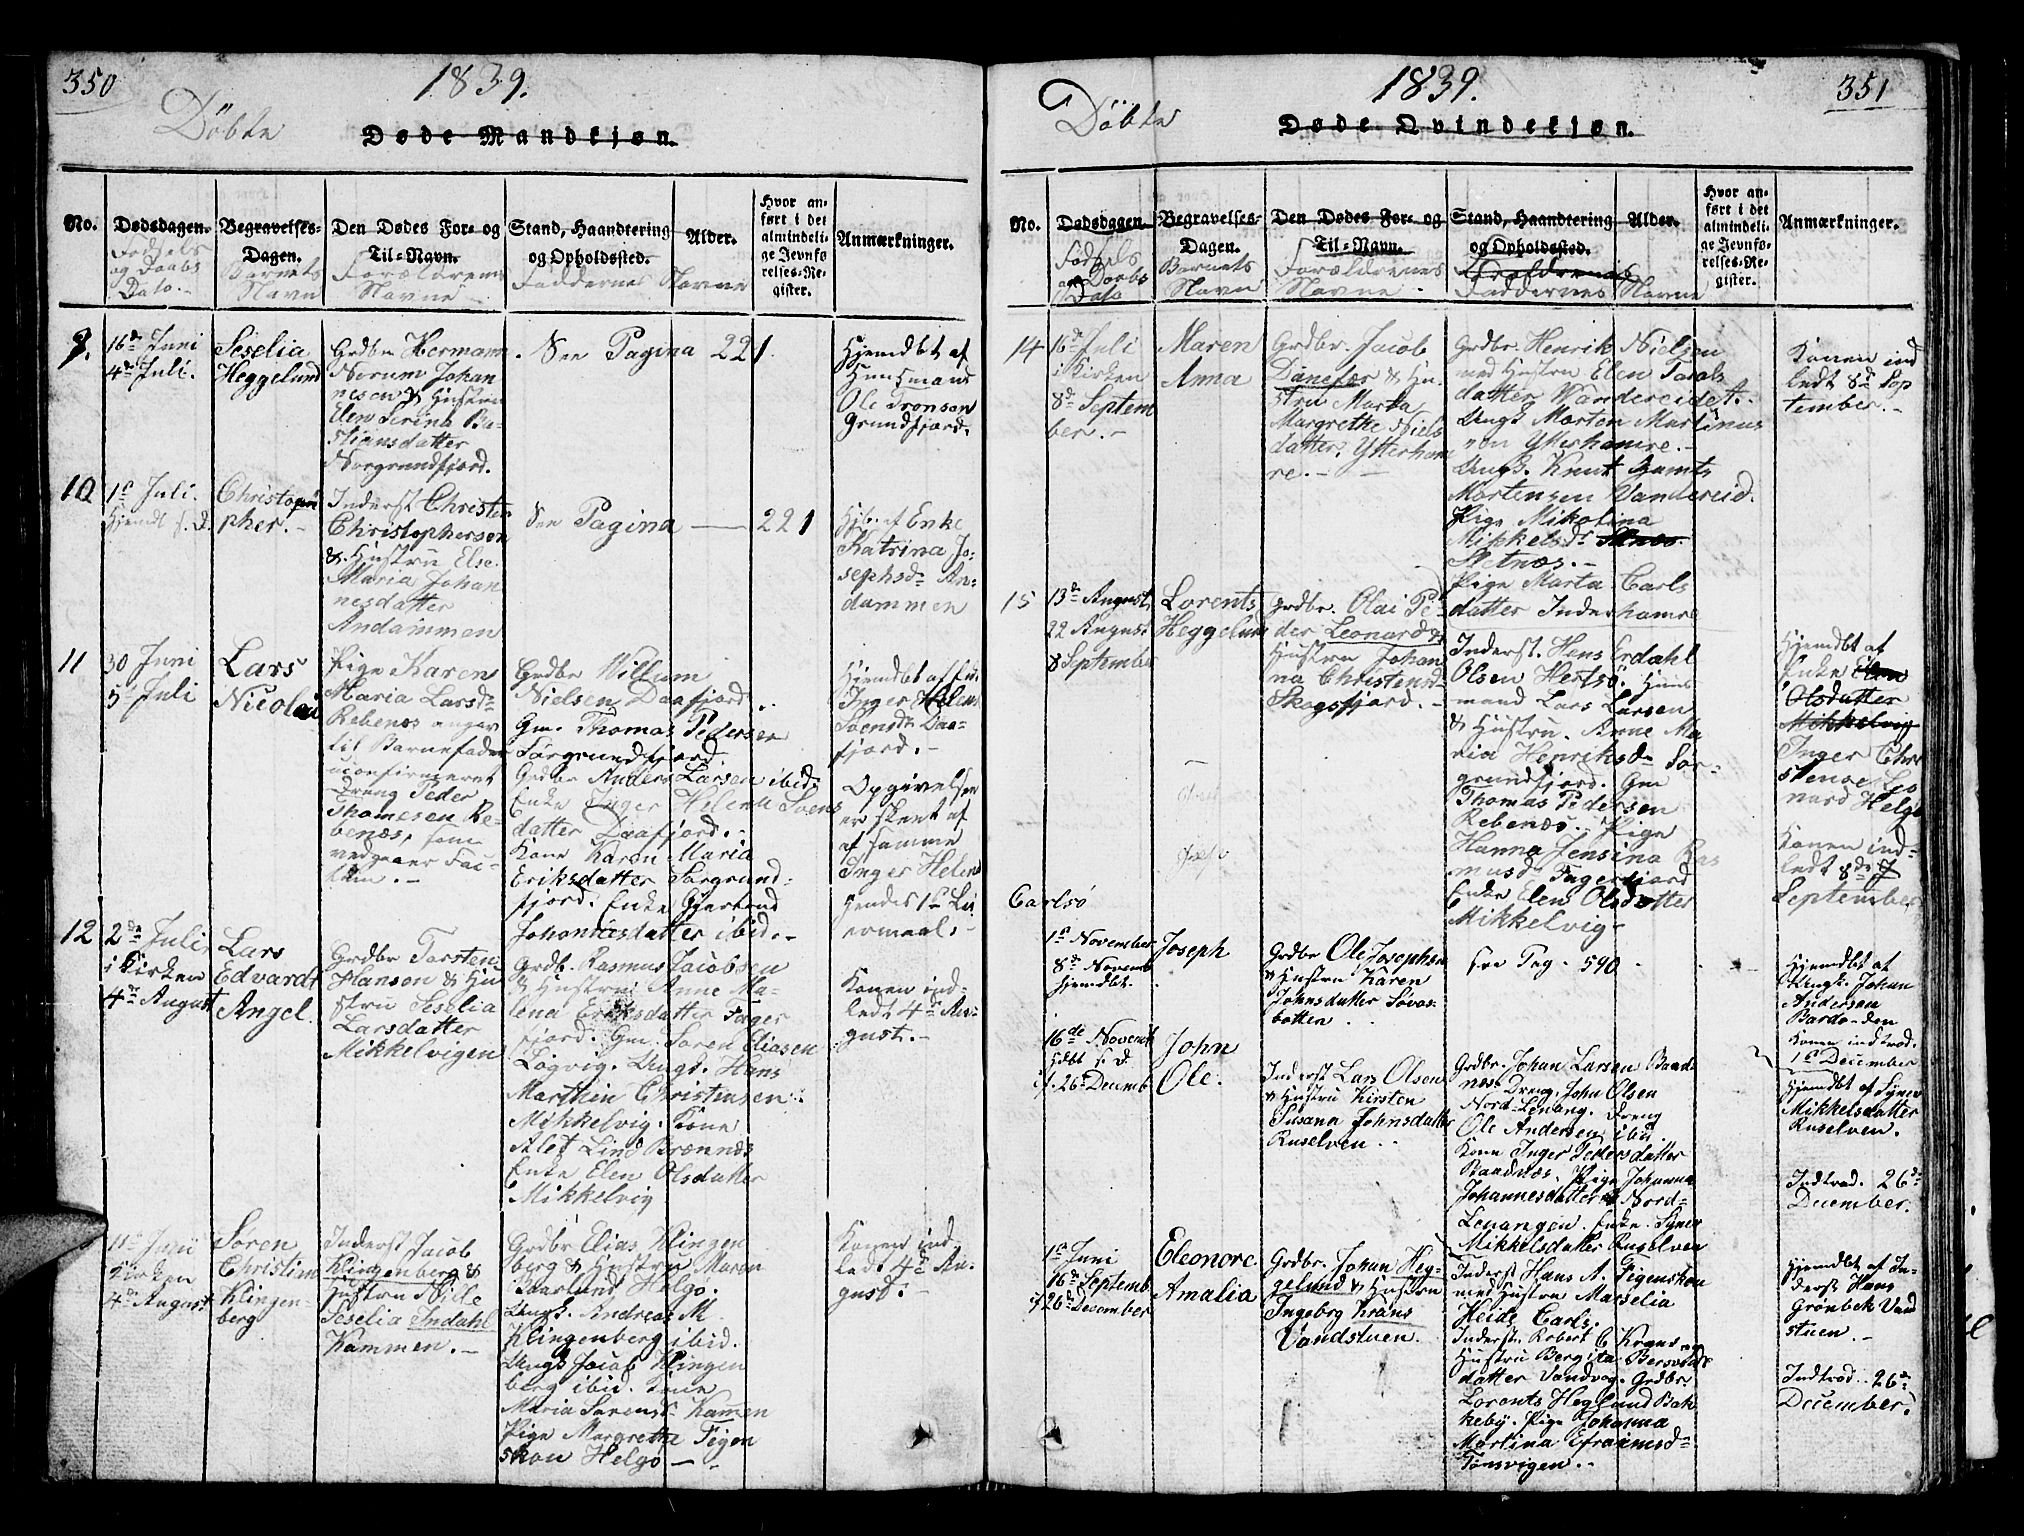 350
1839.
Döbte
Døde Mandkjøn.
No.
Dødsdagen.
Fødsels
og Daabs
Dato.
Begravelses-
Dagen.
Barnets
Navn
Den Dødes For- og
Til-Navn.
Forældrenes
Navne
Stand, Haandtering
og Opholdssted.
Faddernes Navne
Alder.
Hvor an-
ført i det
almindeli-
ge Jevnfø-
relses-Re-
gister.
Anmærkninger.
9.
16de Juni
4de Juli.
Seselia
Heggelund
Grdbr Hermann
Norum Johan
nesen & Hustru
Elen Serina Ba-
stiansdatter
Norgrundfjord.
See Pagina 221.
Hjemdbt af
Huusmand
Ole Tronsen
Grundfjord.
10
1st Juli.
Hjemdt s. D.
Christop
pher.-
Inderst Christen
Christophersen
& Hustru Else
Maria Johan
nesdatter
Andammen
See Pagina — 221
Hjb. af Enke
Katrina Jo-
sephsdr An-
dammen
11
30 Juni
5te Juli
Lars
Nicolai
Pige Karen
Maria Larsd-
Rebenes angav
til Barnefader
uconfirmeret
Dreng Peder
Thomesen Re-
benæs, som
vedgaaer Fai-
ten.-
Grdbr Willum
Nielsen Daafjord..
Gm. Thomas Pedersen
Sørgrundfjord.
Grdbr Anders Larsen ibid.
Enke Inger Helena Soens
datter Daafjord.-
Kone Karen Maria
Eriksdatter Sørgrund-
fjord. Enke Gjertrud
Johannesdatter ibid.-
Hjemdbt af Enke
Inger Helena
Soensdr Daa-
fjord.-
Opgivelsen
er skeet af
af samme
Inger Helena
hendes 1st Lei
ermaal.-
12
2de Juli,
i Kirken
4de August
Lars
Edvardt
Angel.
Grdbr Torsten
Hansen & Hu
stru Seselia
Larsdatter
Mikkelvigen
Grdb. Rasmus Jacobsen
& Hustru Anne Ma-
lena Eriksdatter Fager
fjord. Gm. Soren Eliasen
Løgvig. Ungk. Hans
Marthin Christensen.
Mikkelvig. Kone
Alet Lind Brennæs
Enke Elen Olsdatter
Mikkelvig
Konen ind-
ledt 4de Au-
gust.-
11te Juni
Kirken
4de August
Soren
Christian
Klingen
berg
Inderst Jacob
Klingenberg &
Hustru Nille
Seselia Indahl
Kammen.-
Grdbr Elias Klingen
berg & Hustru Maren
Baarlund Helgø.
Ungk. Andreas M.
Klingenberg ibid.
Ungk Jacob Klingen
berg ibid. Kone
Maria Sorensd- Kamen
Pige Margrethe Figen
skou Helgø -
Konen ind-
ledt 4de Au-
gust.-
351
1839.
Döbte
Døde Qvindekjøn.
No.
Dødsdagen.
Fødsels
og Daabs
Dato
Begravelses-
Dagen.
Barnets
Navn
Den Dødes For- og
Til-Navn.
Forældrenes
Navne.
Stand, Haandtering
og Opholdssted.
Forældrenes
Faddernes Navne
Alder.
Hvor an-
ført i det
almindeli-
ge Jevnfø-
relses-Re-
gister.
Anmærkninger.
14
16de Juli
i Kirken
8de Septem
ber.-
Maren
Anna
Grdbr. Jacob
Danefær & Hu-
stru Marta
Margrethe Niels
datter. Ytterham
re.-
Grdbr. Henrik Nielsen
med Hustru Elen Tarals
datter Wandereidet.-
Ungk Morten Martinus
sen Ytterhamre.-
Ungk. Knut Gamts
Mortensen Vandereid.
Pige Mikolina
Mikkelsdr
Sletnæs.-
Pige Marta Carls
datter Inderhamre
Konen ind
ledt 8de Sep
tember.-
15
13de August
22 August
8 September
Lorents
Heggelund
Grdbr. Olai Pe-
der Leonard &
Hustru Johan
na Christensd-
Skogsfjord.-
Inderst. Hans Erdahl
Olsen Hersø. Huus
mand Lars Larsen
& Hustru. Anne Ma
ria Henriksdr Sør-
grundfjord. Gm
Thomas Pedersen
Rebenæs.- Pige
Hanna Jensina Ras
musdr Fagerfjord
Enke Elen Olsdatter
Mikkelvig.
Hjemdbt af
Enke Elen
Olsdatter
Mikkelvig
Inger Chri
stense Leo
nard Helgø
Konen ind-
ledt 8de 7
September
Carlsø
1st November
8de Novemb
hjemdbt.
Joseph
Grdbr Ole Josephsen
& Hustru Karen
Johnsdatter Sovos-
botten..
see Pag. 590.
Hjemdbt af
Ungk. Johan
Andersen
Bardo- den
Konen indtrod.
1st December
16de Novemb
H.dbt s. D.
i K. 26de Decemb
John
Ole.
Inderst Lars Olsen
& Hustru Kirsten
Susann Johnsdatter
Russelven..
Grdbr. Johan Larsen Baad
næs. Dreng John Olsen
Nord-Lenang. Dreng
Ole Andersen ibid.
Kone Inger Pedersdatter
Baadnæs. Pige Johanna
Johannesdatter Nord-
Lenangen. Enke. Synev
Mikkelsdatter Ruselven
Hjemdbt af Synev
Mikkelsdatter
Ruselven.
Indtrod. 26de
December.
1st Juni
16de Septemb
i K. 26de December
Eleonore
Amalia
Grdbr. Johan Heg-
gelund & Hustru
Ingeborg Krans
Vandstuen.
Inderst Hans A. Figenskou
med Hustru Marselia
Heide Carls.
Inderst. Robert C. Krans og
Hustru Bergita Bersvends
datter Vandvag. Grdbr.
Lorents Heglund Bak-
keby. Pige Johanna
Martina Efraimsd-
Tønsvigen.-
Hjemdbt af In-
derst Hans
Grønbek Vand
stuen.-
Indtrod. 26de
December.